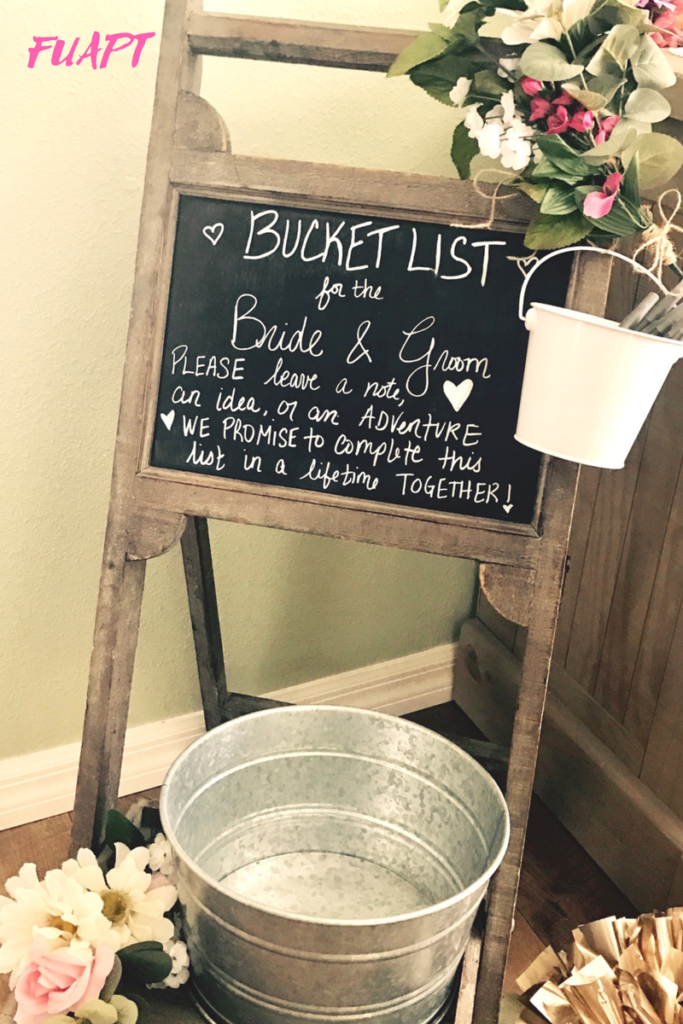 FUAPT
BUCKET LIST
for the
Bride & Groom
PLEASE leave a note,
an idea, or an ADVENTURE
WE PROMISE to complete this
list in a lifetime TOGETHER!